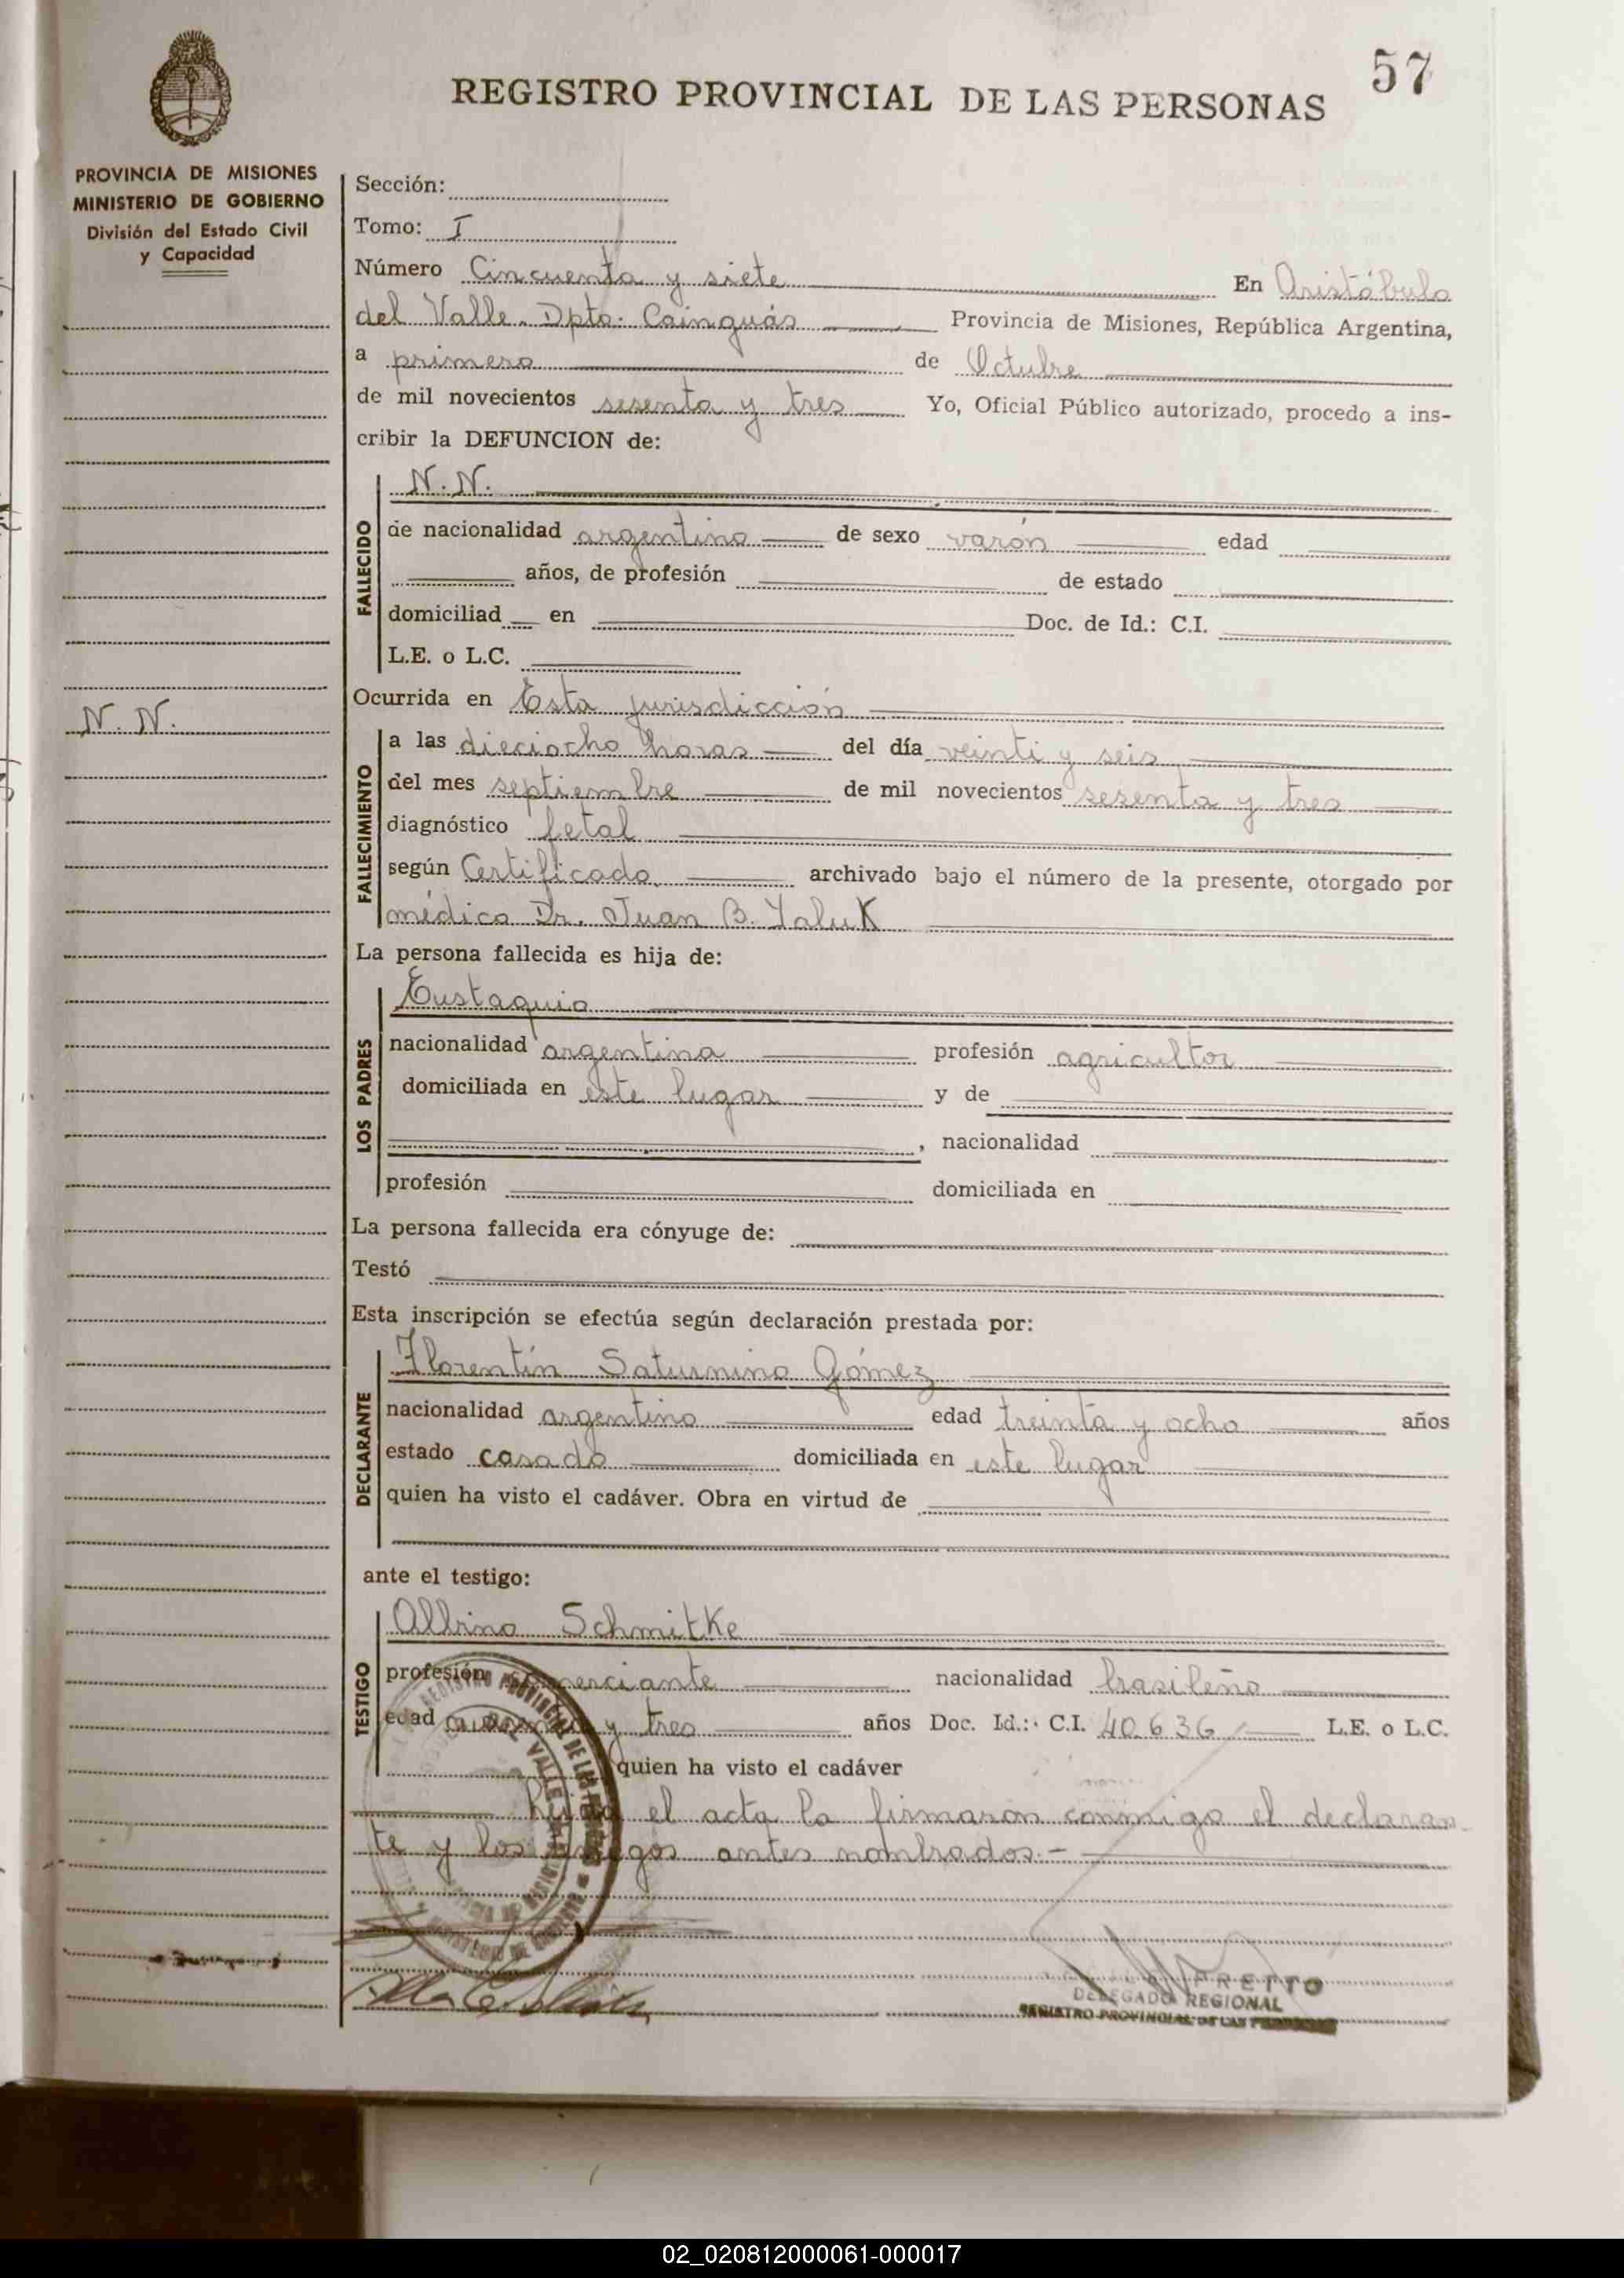 57
REGISTRO PROVINCIAL DE LAS PERSONAS
PROVINCIA DE MISIONES
MINISTERIO DE GOBIERNO
División del Estado Civil
y Capacidad
N. N.
Sección:
Tomo: I
Número Cincuenta y siete En Aristóbulo
del Valle. Dpto. Cainguás Provincia de Misiones, República Argentina,
a primero de Octubre
de mil novecientos sesenta y tres Yo, Oficial Público autorizado, procedo a ins-
cribir la DEFUNCION de:
FALLECIDO
N. N.
de nacionalidad argentino de sexo varón edad
años, de profesión de estado
domiciliad en Doc. de Id.: C.I.
L.E. o L.C.
Ocurrida en Esta jurisdicción
FALLECIMIENTO
a las dieciocho horas del día veinti y seis
del mes septiembre de mil novecientos sesenta y tres
diagnóstico fetal
según Certificado archivado bajo el número de la presente, otorgado por
médico Dr. Juan B. Yaluk
La persona fallecida es hija de:
LOS PADRES
Eustaquia
nacionalidad argentina profesión agricultor
domiciliada en este lugar y de
, nacionalidad
profesión domiciliada en
La persona fallecida era cónyuge de:
Testó
Esta inscripción se efectúa según declaración prestada por:
DECLARANTE
Florentín Saturnino Gómez
nacionalidad argentino edad treinta y ocho años
estado casado domiciliada en este lugar
quien ha visto el cadáver. Obra en virtud de
ante el testigo:
TESTIGO
Albino Schmitke
profesión comerciante nacionalidad brasileño
edad y tres años Doc. Id.: C.I. 40.636 L.E. o L.C.
quien ha visto el cadáver
el acta la firmaron conmigo el declaran-
te y los testigos antes nombrados.-
PRETTO
DELEGADO REGIONAL
REGISTRO PROVINCIAL DE LAS PERSONAS
02_020812000061-000017